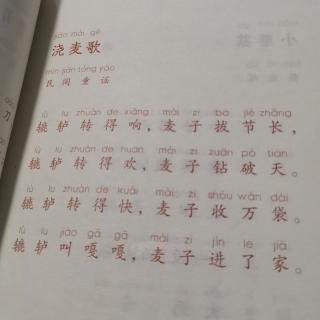 jiāo mài gē
浇麦歌
mín jiān tóng yáo
民间童谣
lù lu zhuàn de xiǎng mài zi bá jié zhǎng
辘轳转得响，麦子拔节长，
lù lu zhuàn de huān mài zi zuān pò tiān
辘轳转得欢，麦子钻破天。
lù lu zhuàn de kuài mài zi shōu wàn dài
辘轳转得快，麦子收万袋。
lù lu jiào gā gā mài zi jìn le jiā
辘轳叫嘎嘎，麦子进了家。
刀